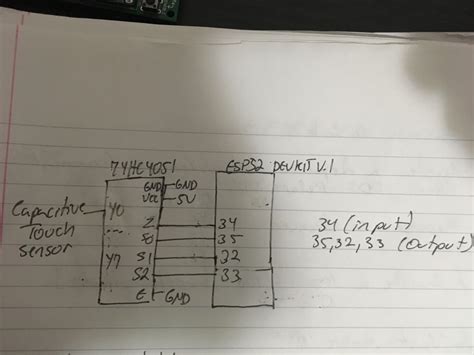 74HC4051 ESP32 DEVKIT V.1
GND GND
VCC 5V
Capacitive Y0
Touch Z 34 34 (input)
Sensor S0 35 35,32,33 (output)
Y7 S1 32
S2 33
E GND